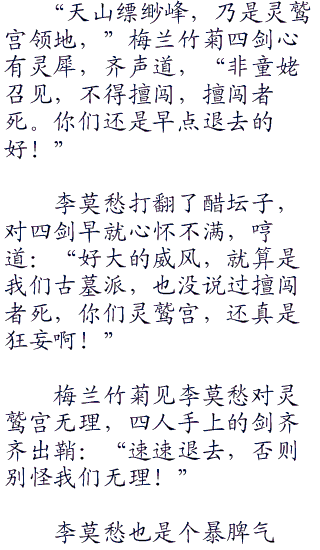 “天山缥缈峰，乃是灵鹫
宫领地，”梅兰竹菊四剑心
有灵犀，齐声道，“非童姥
召见，不得擅闯，擅闯者
死。你们还是早点退去的
好！”
李莫愁打翻了醋坛子，
对四剑早就心怀不满，哼
道：“好大的威风，就算是
我们古墓派，也没说过擅闯
者死，你们灵鹫宫，还真是
狂妄啊！”
梅兰竹菊见李莫愁对灵
鹫宫无理，四人手上的剑齐
齐出鞘：“速速退去，否则
别怪我们无理！”
李莫愁也是个暴脾气